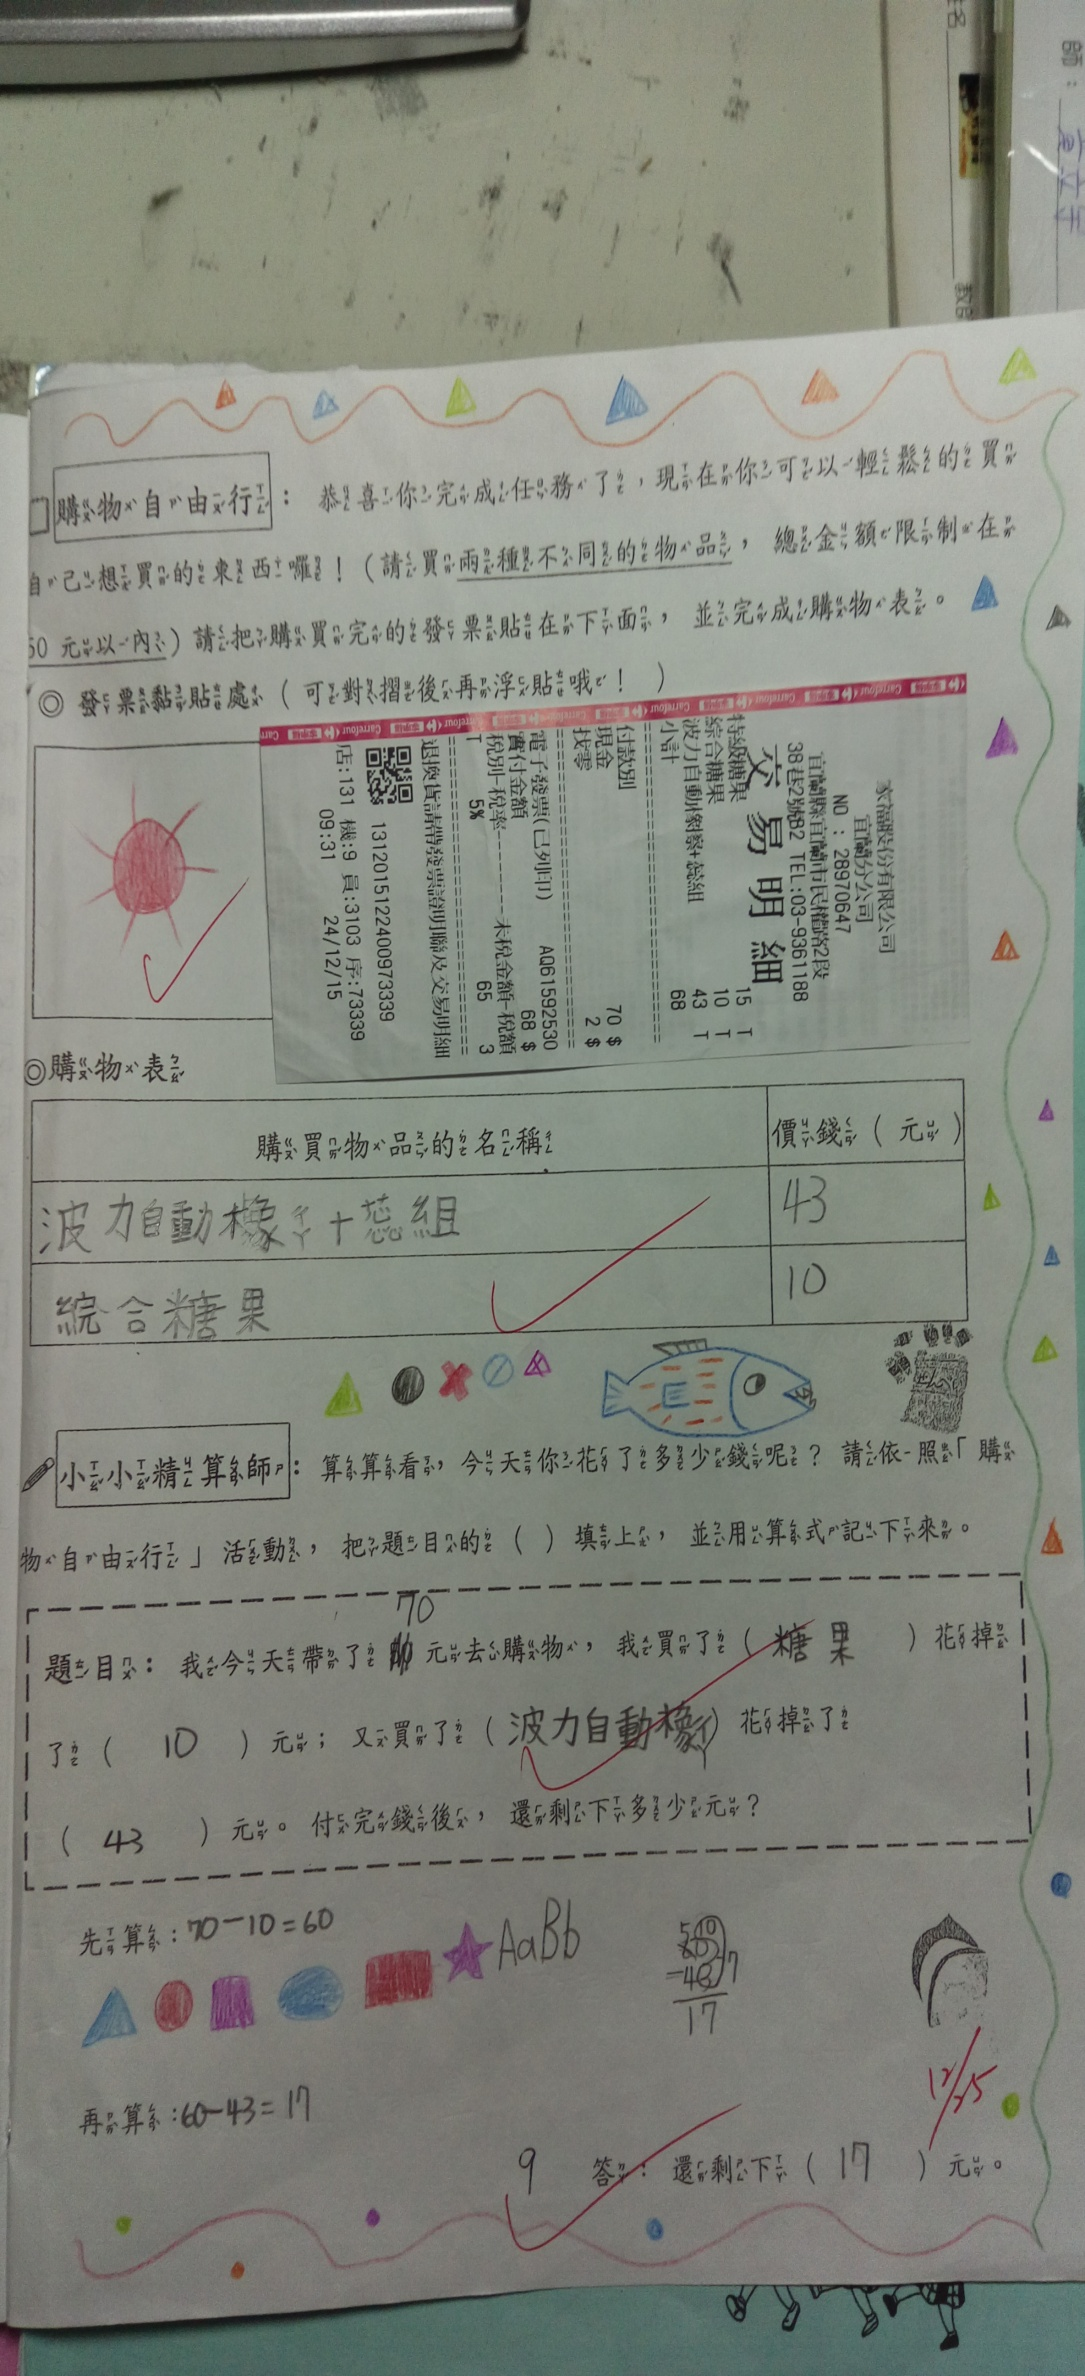 購物自由行： 恭喜你完成任務了，現在你可以輕鬆的買
自己想買的東西囉！（請買兩種不同的物品， 總金額限制在
50 元以內）請把購買完的發票黏貼在下面， 並完成購物表。
◎ 發票黏貼處（ 可對摺後再浮貼哦！ ）
家福股份有限公司
宜蘭分公司
NO : 28970647
宜蘭縣宜蘭市民權路2段
38巷2號B2 TEL:03-9361188
交 易 明 細
特級糖果 15 T
綜合糖果 10 T
43 T
小計 68
付款別
現金 70 $
找零 2 $
電子發票(已列印) AQ61592530
實付金額 68 $
稅別-稅率---------未稅金額-稅額
T 5% 65 3
退換貨請帶發票證明聯及交易明細
1312015122400973339
店:131 機:9 員:3103 序:73339
09:31 24/12/15
Carrefour 家樂福
◎購物表
購買物品的名稱 價錢（ 元 ）
波力自動橡ㄘㄚ+蕊組 43
綜合糖果 10
小小精算師： 算算看，今天你花了多少錢呢？ 請依照「 購
物自由行」 活動， 把題目的（ ）填上， 並用算式記下來。
70
題目： 我今天帶了 元去購物， 我買了（ 糖果 ）花掉
了（ 10 ）元； 又買了（波力自動橡ㄘㄚ）花掉了
（ 43 ）元。 付完錢後， 還剩下多少元？
先算：70-10=60
AaBb
5 10
60
-43
17
17
再算：60-43=17
12/25
9 答： 還剩下（ 17 ）元。